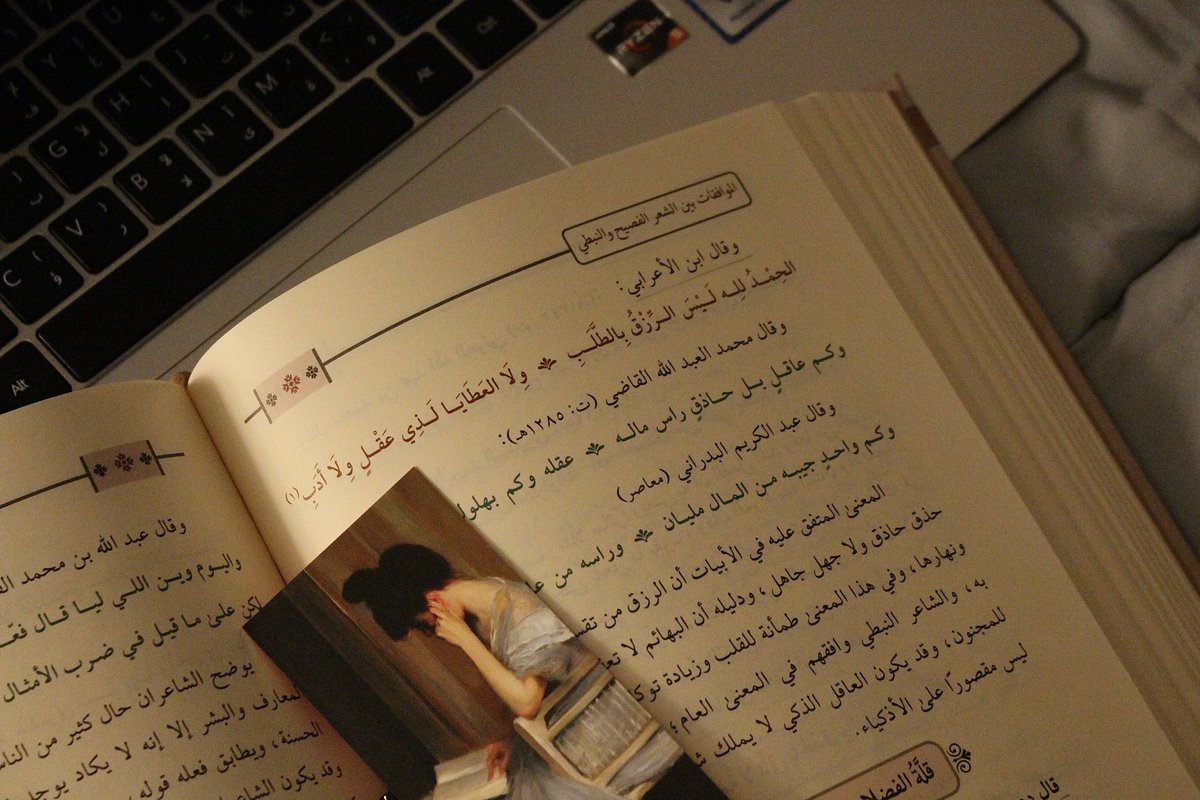 الموافقات بين الشعر الفصيح والنبطي
وقال ابن الأعرابي:
الحِمْدُ لِلِه لَيْسَ الرِّزْقُ بِالطَّلَبِ وِلَا العَطَايَا لَذِي عَقْلٍ وِلَا أَدَبِ (١)
وقال محمد العبد الله القاضي (ت: ١٢٨٥هـ):
وكم عاقلٍ بل حاذقٍ راس ماله عقله وكم بهلول
وقال عبد الكريم البدراني (معاصر)
وكم واحدٍ جيبه من المال مليان وراسه من
المعنىٰ المتفق عليه في الأبيات أن الرزق من
حذق حاذق ولا جهل جاهل، ودليله أن البهائم لا
ونهارها، وفي هذا المعنىٰ طمأنة للقلب وزيادة
به، والشاعر النبطي وافقهم في المعنىٰ العام؛
للمجنون، وقد يكون العاقل الذكي لا يملك
ليس مقصوراً علىٰ الأذكياء.
قلَّةُ
قال
وقال عبد الله بن محمد
واليوم وين اللي ليا قال
علىٰ ما قيل في ضرب الأمثال
يوضح الشاعران حال كثير من
المعارف والبشر إلا إنه لا يكاد
الحسنة، ويطابق فعله قوله
وقد يكون
RYZEN
5
Alt
Ctrl
Alt
Y
U
H
J
K
G
B
N
M
V
C